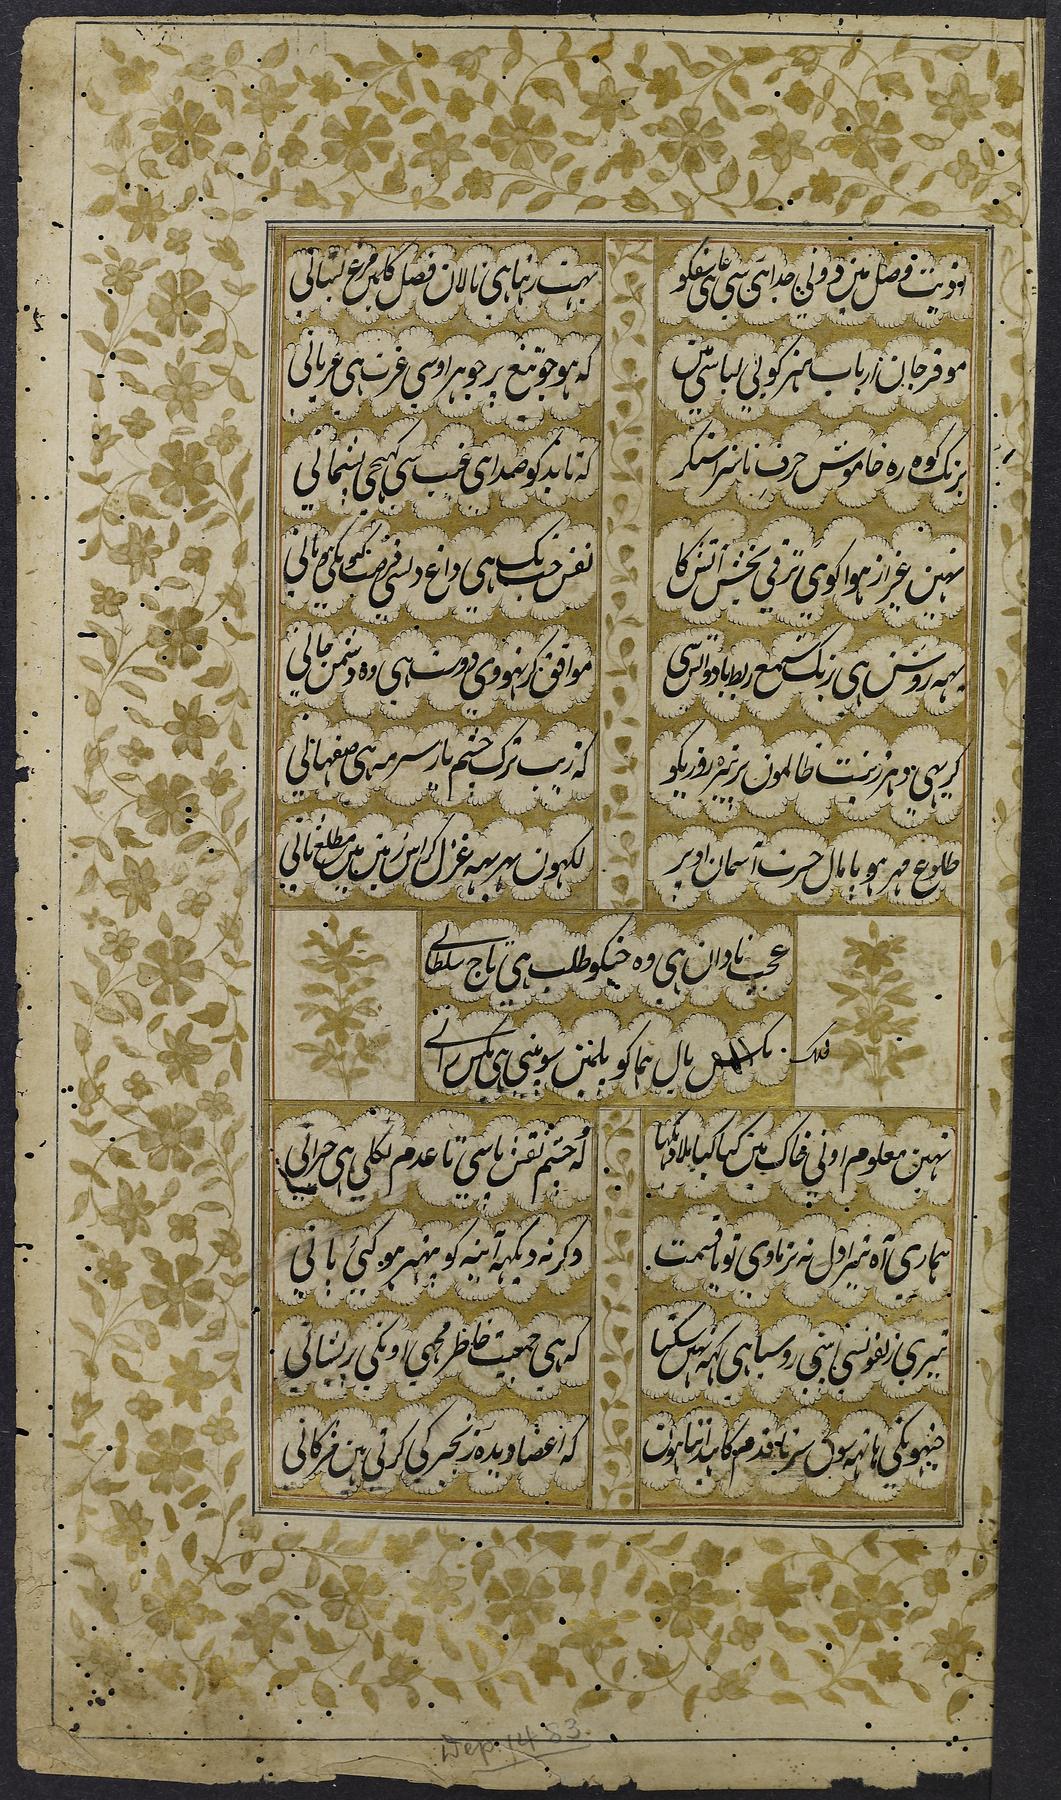 اذیت وصل مین دونی جدائی سی عاشقکو
بہت رہتا ہی نالان فصل کل مین مرغ بستانی
موقر جان ارباب ہنر کو بی لباسی مین
کہ ہو جو تیغ پر جوہر اوسی عزت ہی عریانی
برنک کوہ رہ خاموش حرف ناسزا سنکر
کہ تا بد کو صدای غیب سی کہینچی پشیمانی
نہین غیر از ہوا کوئی ترقی بخش آتش کا
نفس جب تک ہی داغ دلسی فرصت کیونکی ہو پانی
یہہ روشن ہی برنک شمع ربط باد و آتش سی
موافق کر نہووی دوست ہی وہ دشمن جانی
کری ہی دہر زینت ظالمون پر تیرہ روزیکو
کہ زیب ترک چشم یار سرمہ ہی صفہانی
طلوع مہر ہو پامال حسرت آسمان اوپر
لکہون پہر یہہ غزل کر اس زمین مین مطلع ثانی
عجب نادان ہی وہ جنکو طلب ہی تاج سلطانی
فلک بال ہما کو پلمین سونپی ہی مکس رانی
نہین معلوم اونی خاک مین کیا کیا ملا دیکہا
کہ چشم نقش پا سی تا عدم نکلی ہی حیرانی
ہماری آہ تیرا دل نہ نرماوی تو یا قسمت
وکرنہ دیکہہ آینہ کو پتہر ہو کئی پانی
تیری زلفونسی اپنی روسیاہی کہہ نہین سکتا
کہ ہی جمعیت خاطر مجہی اونکی پریشانی
جنہونکی ہاتہہ سون سر تا قدم کاہیدہ اتنا ہون
کہ اعضا دیدہ زنجیر کی کرتی ہین مژکانی
Dep. 1483